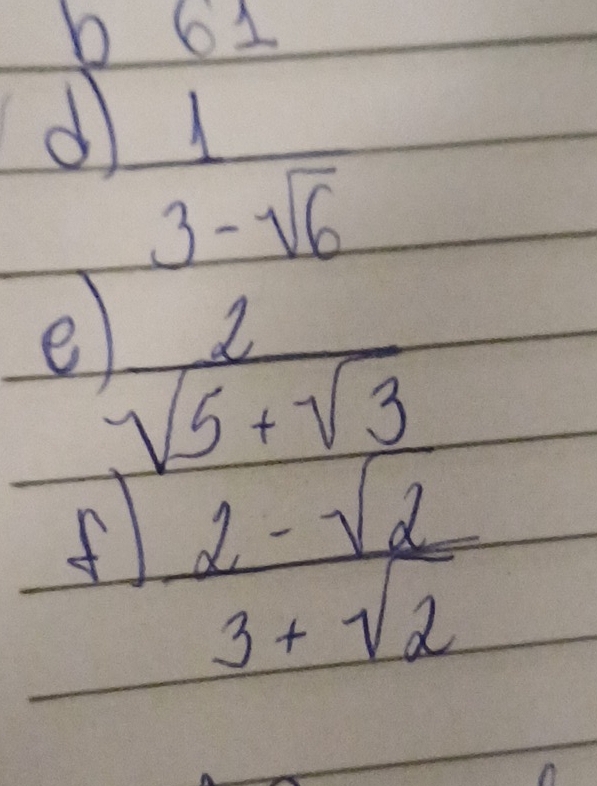 b 61
d) 1
3 - √6
e) 2
√5 + √3
f) 2 - √2
3 + √2